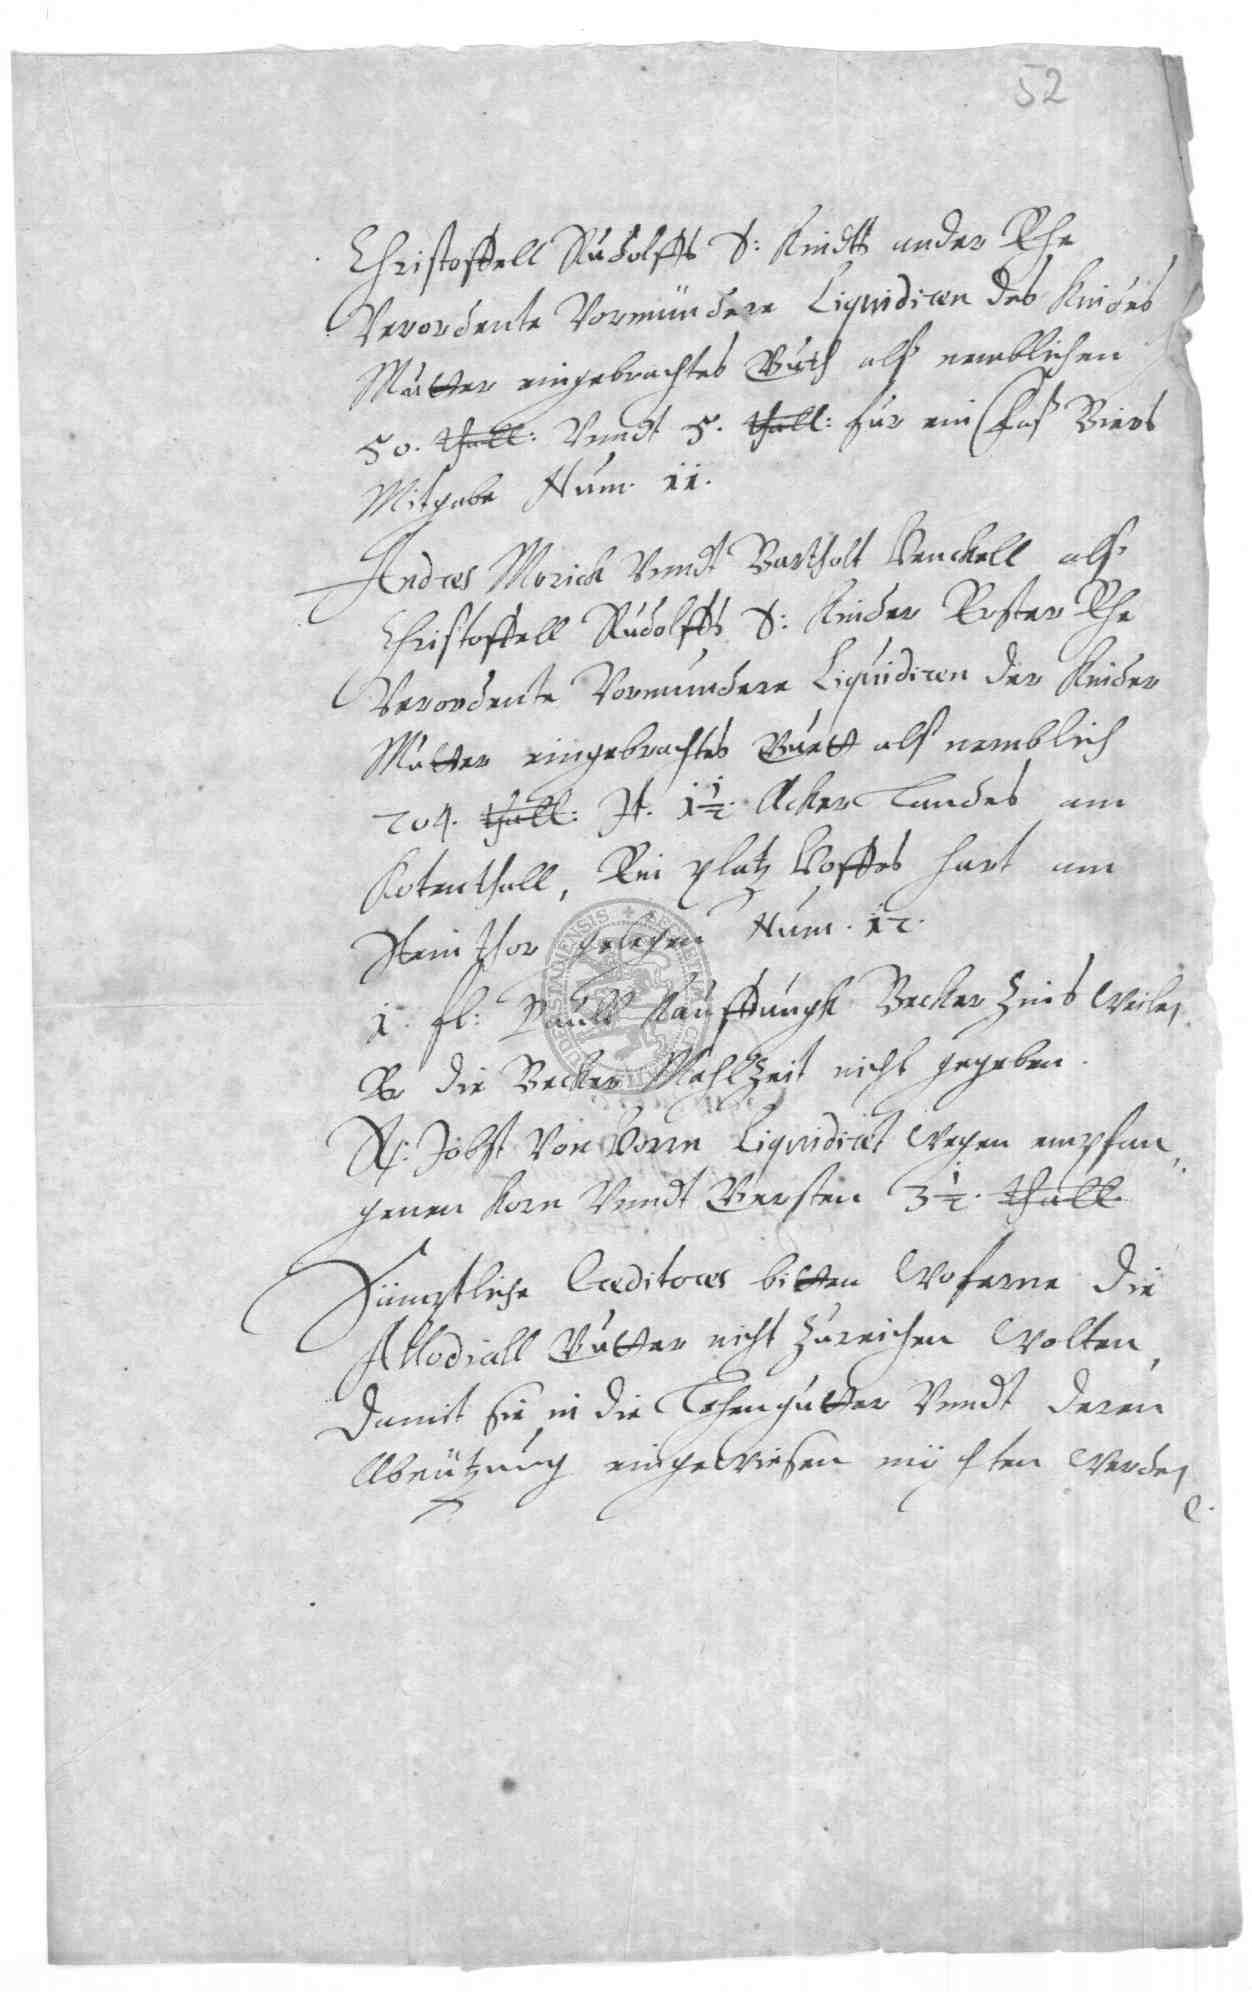 52
Christoffell Rudolffs S: Kindts ander Ehe
Verordente Vormündere Liquidiren des Kindes
Mutter eingebrachtes Guth alß nemblichen
50. thall: Vnndt 5. thall: für ein Faß Biers
Mitgabe Num. 11.
Andres Morich Vnndt Bartholt Henckell alß
Christoffell Rudolffs S: Kinder Erster Ehe
Verordente Vormundere Liquidiren der Kinder
Mutter eingebrachtes Guett alß nemblich
204. thall: It. 1 1/2. Acker Landes am
Kotenthall, Ein platz Hoffes hart am
Steinthor gelegen Num. 12.
1. fl: Paull Kauffungk Becker Zins Weile
Er die Becker Mahlzeit nicht gegeben.
Jobst Von Horn Liquidiret Wegen empfan,
genen Korn Vnndt Gersten 3 1/2. thall.
Sämptliche Creditores bitten Woferne die
Allodiall Gutter nicht Zureichen Wolten,
damit sie in die Lehengutter Vnndt deren
Abnützung eingewiesen möchten Werde